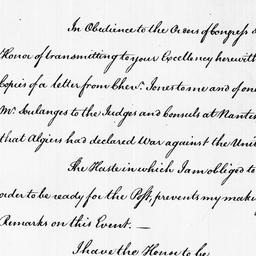 In Obedience to the Orders of Congress
Honor of transmitting to your Excellency herewith
Copies of a letter from Chevr. Jones to me and of one
Mr. Soulanges to the Judges and Consuls at Nantes
that Algiers had declared War against the Unit
The Haste in which I am obliged to
order to be ready for the Post, prevents my mak
Remarks on this Event. —
I have the Honor to be